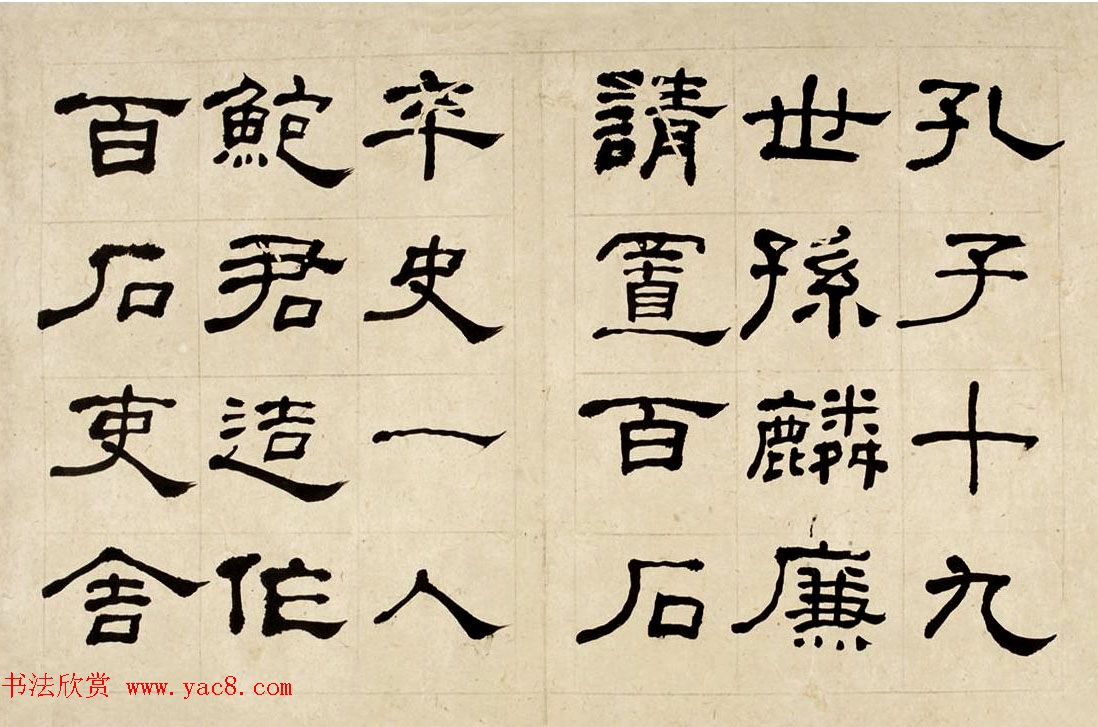 孔子十九
世孫麟廉
請置百石
卒史一人
鮑君造作
百石吏舍
书法欣赏 www.yac8.com